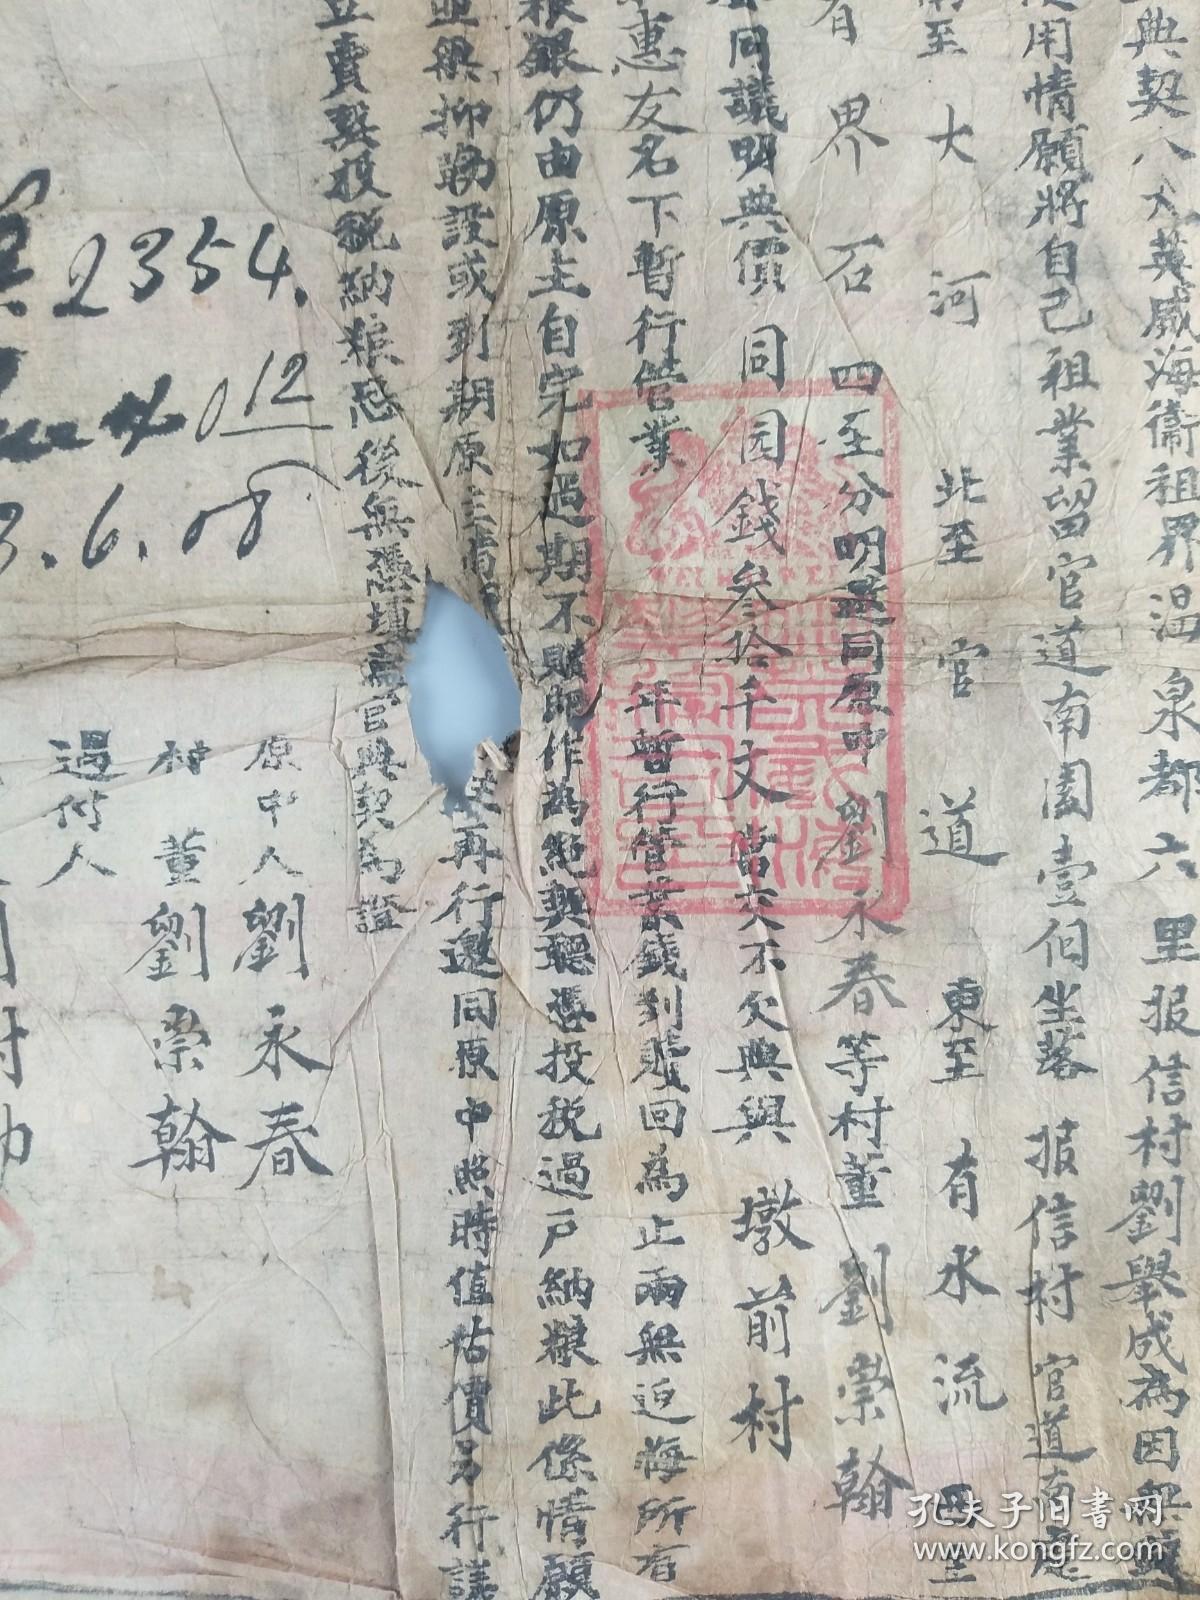 典契人大英威海衛租界温泉都六里报信村劉舉成為因無錢
使用情願將自己祖業留官道南園壹個坐落 报信村 官道南處
南至 大河 北至 官道 東至 有水流 西至
有界石 四至分明邀同原中 劉永春等村董 劉崇翰
同議明典價 同园錢叁拾千文當交不欠典與 墩前村
惠友名下暫行管業 年暫行管業錢到贖回為止兩無迫悔所有
粮銀仍由原主自完如過期不贖即作為絕契聽憑投稅過户納粮此係情願
並無抑勒設或到期原主 再行邀同原中照時值估價另行議
立賣契投稅納粮恐後無憑填寫官典契為證
2354.
12
6. 08
原中人劉永春
村董劉崇翰
過付人
WEI HAI WEI
孔夫子旧书网
www.kongfz.com